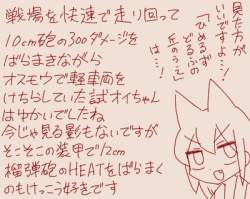 戦場を快速で走り回って
10cm砲の300ダメージを
ばらまきながら
オスモウで軽車両を
けちらしていた試オイちゃん
はゆかいでしたね
今じゃ見る影もないですが
そこそこの装甲で12cm
榴弾砲のHEATをばらまく
のもけっこう好きです
見た方が
いいですよ…!
「ひめるず
どるぶの
丘のうえ」
は…!